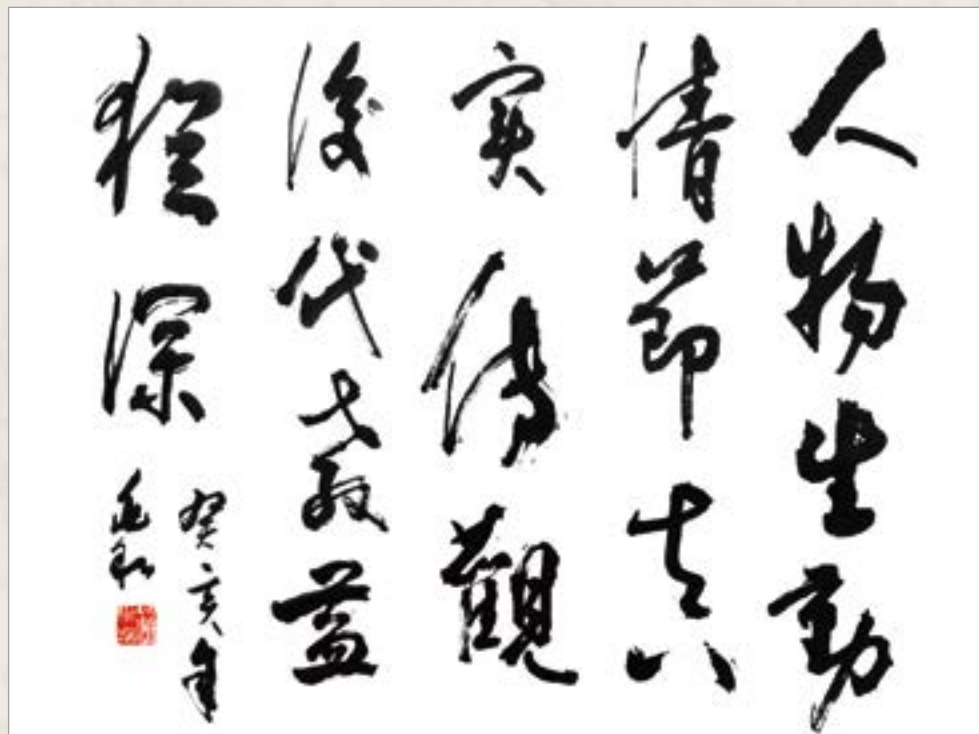 人物生動
情節真
實傳觀
後代教益
極深
癸亥年